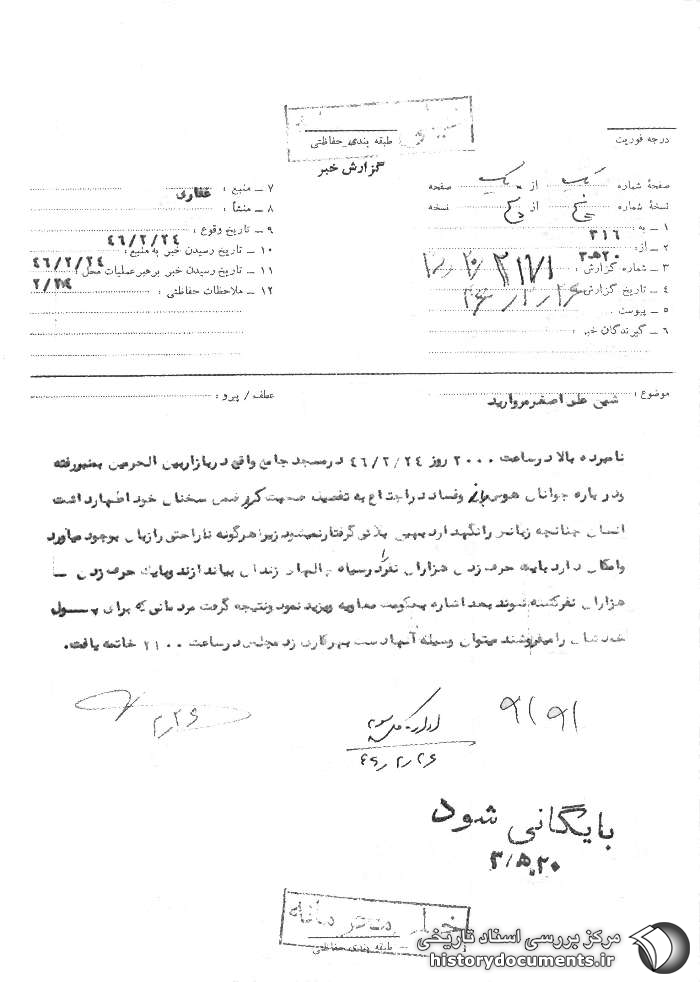 درجه فوریت
طبقه بندی حفاظتی
گزارش خبر
صفحهٔ شماره یک از یک صفحه
نسخهٔ شماره از نسخه
۱ ــ به : ۳۱۶
۲ ــ از : ۲۰ه۳
۳ ــ شماره گزارش :
۴ ــ تاریخ گزارش :
۵ ــ پیوست
۶ ــ گیرندگان خبر :
۷ ــ منبع : غفاری
۸ ــ منشأ :
۹ ــ تاریخ وقوع : ۴۶/۲/۲۴
۱۰ ــ تاریخ رسیدن خبر به منبع : ۴۶/۲/۲۴
۱۱ ــ تاریخ رسیدن خبر برهبر عملیات محل :
۱۲ ــ ملاحظات حفاظتی :
موضوع : شیخ علی اصغر مروارید
عطف / پیرو :
نامبرده بالا در ساعت ۲۰۰۰ روز ۴۶/۲/۲۴ در مسجد جامع واقع در بازار بین الحرمین بمنبر رفته
و در باره جوانان هوسباز و فساد در اجتماع به تفصیل صحبت کرد ضمن سخنان خود اظهار داشت
انسان چنانچه زبانش را نگهدارد بهیچ بلائی گرفتار نمیشود زیرا هرگونه ناراحتی را زبان بوجود میاورد
و امکان دارد بایک حرف زدن هزاران نفر را در سیاه چالهای زندان بیاندازند و بایک حرف زدن ــ
هزاران نفر کشته شوند بعد اشاره بحکومت معاویه و یزید نمود و نتیجه گرفت مردمانی که برای پول
خودشان را میفروشند میتوان وسیله آنها دست بهر کاری زد مجلس در ساعت ۲۱۰۰ خاتمه یافت.
۲٫۲۶
۴۶٫۲٫۲۶
بایگانی شود
۲۰ه۳
طبقه بندی حفاظتی
مرکز بررسی اسناد تاریخی
historydocuments.ir